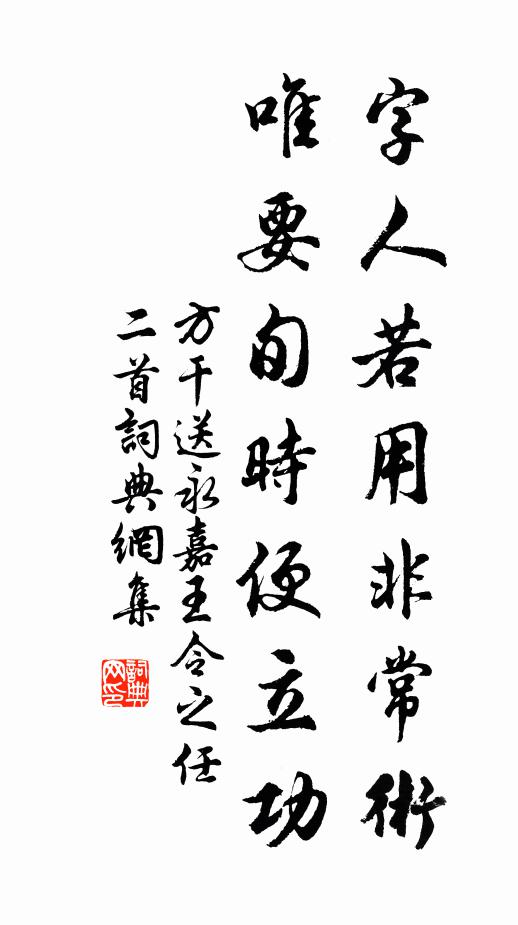 字人若用非常術
唯要旬時便立功
方干送永嘉王令之任
二首詞典網集
詞典网印